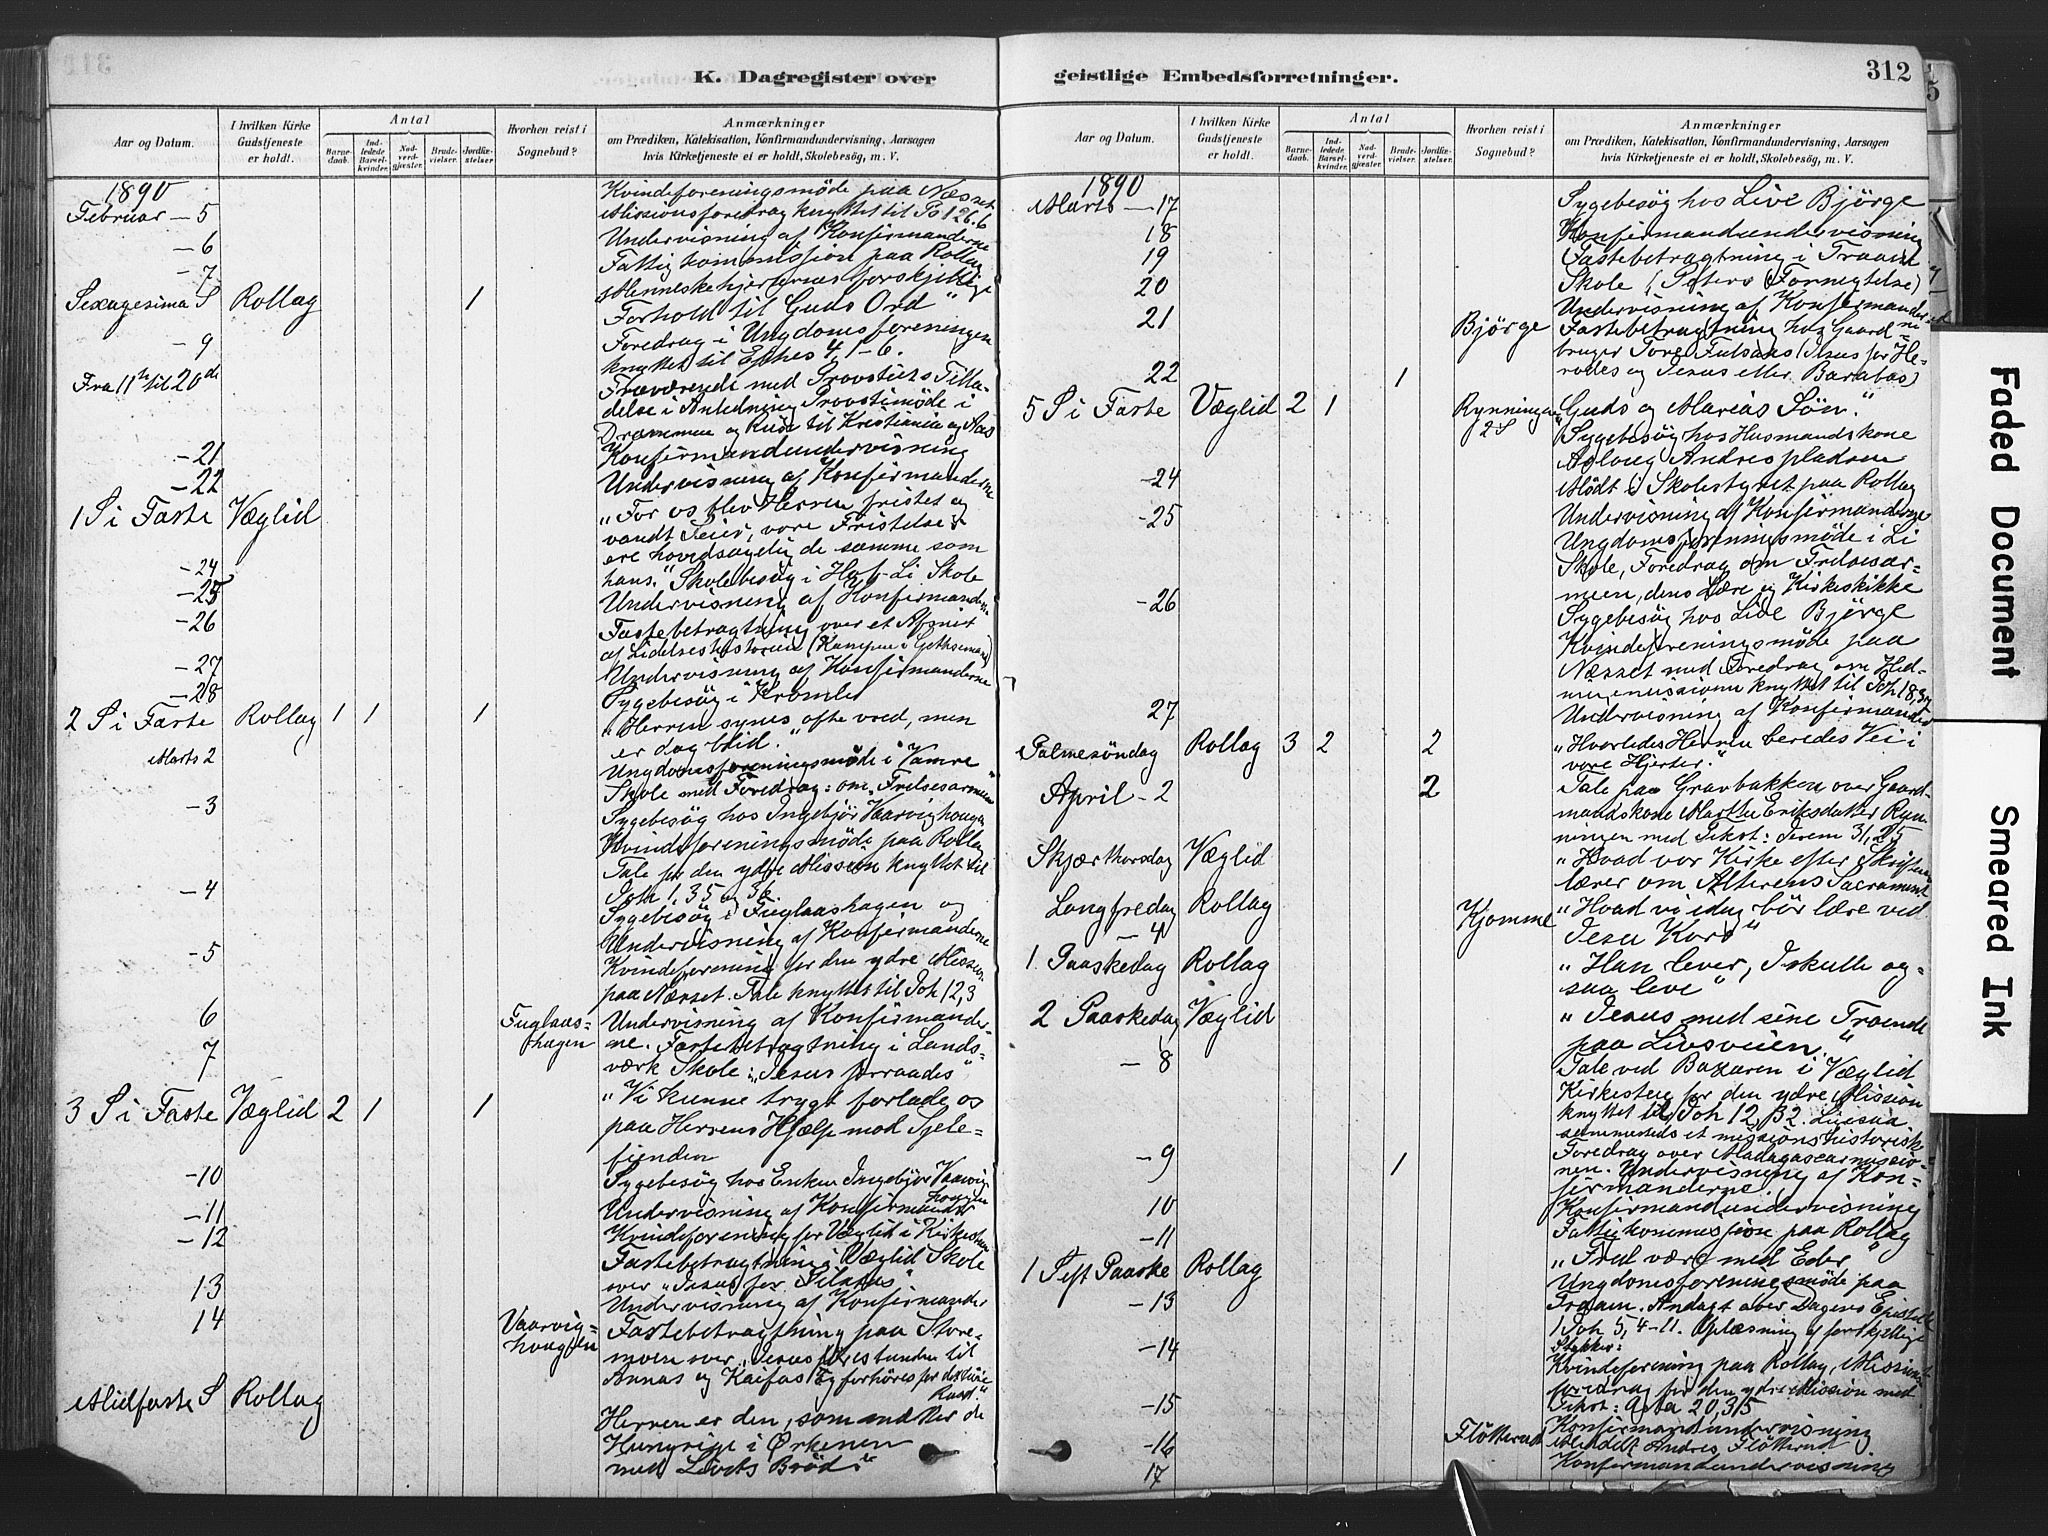 K. Dagregister over
Aar og Datum.
I hvilken Kirke Gudstjeneste er holdt.
Antal
Barnedaab.
Indledede Barselkvinder.
Nadverdgjæster.
Brudevielser.
Jordfæstelser
Hvorhen reist i Sognebud?
Anmærkninger
om Prædiken, Katekisation, Konfirmandundervisning, Aarsagen
hvis Kirketjeneste ei er holdt, Skolebesøg, m. V.
1890
Februar - 5
Kvindeforeningsmöde paa Næsset
Missionsforedrag knyttet til Ps 126.6
- 6
Undervisning af Konfirmanderne
- 7
Fattigkommission paa Rollag
Sexagesima S Rollag 1
Menneskehjerternes forskjellige
Forhold til Guds Ord"
- 9
Foredrag i Ungdomsforeningen
knyttet til Ephes 4, 1-6.
Fra 11te til 20de
Fraværende med Provstiets Tilladelse
i Anledning Provstimöde i
Drammen og Reise til Kristiania og
- 21
Konfirmandundervisning
- 22
Undervisning af Konfirmanderne
1 S i Faste Væglid
"For os blev Herren fristet og
vandt Seier, vore Fristelser
ere hovedsagelig de samme som
hans."
- 24
Skolebesøg i Hof-Li Skole
- 25
Undervisning af Konfirmanderne
- 26
Fastebetragtning over et Afsnit
af Lidelseshistorien (Kampen i Gethsemane)
- 27
Undervisning af Konfirmanderne
- 28
Sygebesög i
2 S i Faste Rollag 1 1 1
"Herren synes ofte vred, men
er dog blid."
Marts 2
Ungdomsforeningsmöde i Vamre
Skole med Foredrag: om "Frelsesarmeen"
- 3
Sygebesög hos Ingebjör Vaarvighougen
Kvindeforeningsmöde paa Rollag
Tale for den ydre Mission knyttet til
Joh 1, 35 og 36
- 4
Sygebesög i Fuglaashagen og
Undervisning af Konfirmanderne
- 5
Kvindeforening for den ydre Mission
paa Næsset. Tale knyttet til Joh 12,3
6 Fuglaas-
hagen
Undervisning af Konfirmander-
7
ne. Fastebetragtning i Lands-
værk Skole: "Jesus forraades"
3 S i Faste Væglid 2 1 1
"Vi kunne trygt forlade os
paa Herrens Hjælp mod Sjele-
fienden
- 10
Sygebesög hos Enken Ingebjör Vaarvig
hougen
- 11
Undervisning af Konfirmander
- 12
Kvindeforening for Væglid i
Fastebetragtning i Væglid Skole
over "Jesus for Pilatus".
13
Undervisning af Konfirmander
14 Vaarvig-
hougen
Fastebetragtning paa Store-
moen over "Jesus föres bunden til
Annas og Kaifas og forhöres for det höie
Raad."
Midfaste S Rollag
Herren er den, som mætter de
Hungrige i Ørkenen
med Livets Bröd."
geistlige Embedsforretninger.
312
Aar og Datum.
I hvilken Kirke Gudstjeneste er holdt.
Antal
Barnedaab.
Indledede Barselkvinder.
Nadverdgjæster.
Brudevielser.
Jordfæstelser.
Hvorhen reist i Sognebud?
Anmærkninger
om Prædiken, Katekisation, Konfirmandundervisning, Aarsagen
hvis Kirketjeneste ei er holdt, Skolebesøg, m. V.
1890
Marts - 17
Sygebesög hos Live Bjørge
18
Konfirmandundervisning
19
Fastebetragtning i Traaen
Skole (Peters Fornegtelse)
20
Undervisning af Konfirmanderne
21 Bjørge
Fastebetragtning hos Gaard-
bruger Tore (Jesus for He-
rodes og Jesus eller Barabas)
22 1
5 S i Faste Væglid 2 1 Rynningen
2 S
"Guds og Marias Søn."
Sygebesög hos Husmandskone
Aslaug Andrespladsen
- 24
Mödt i Skolestyret paa Rollag
- 25
Undervisning af Konfirmanderne
Ungdomsforeningsmöde i Li
Skole, Foredrag om Frelsesar-
meen, dens Lære og Kirkeskikke
- 26
Sygebesög hos Live Bjørge
Kvindeforeningsmöde paa
Næsset med Foredrag om Hed-
ningemissionen knyttet til Joh 18,
27
Undervisning af Konfirmander
Palmesöndag Rollag 3 2 2
"Hvorledes Herren beredes Vei i
vore Hjerter."
April - 2 2
Tale paa Gravbakken over Gaard-
mandskone Marthe Eriksdatter Ryn-
ningen med Tekst: Jerem 31, 25
Skjærthorsdag Væglid
"Hvad vor Kirke efter Skriften
lærer om Alterens Sacrament
Langfredag Rollag
- 4 Kjomme
"Hvad vi idag bör lære ved
Jesu Kors"
1. Paaskedag Rollag
"Han lever, I skulle og-
saa leve"
2 Paaskedag Væglid
"Jesus med sine Troende
paa Livsveien."
- 8
Tale ved Bazaren i Væglid
Kirkesteg for den ydre Mission
knyttet til Joh 12, 32. Ligesaa
sammesteds et missionshistorisk
Foredrag over Madagascarmissio-
nen.
- 9 1
Undervisning af Kon-
firmanderne.
10
Konfirmandundervisning
- 11
Fattigkommission paa Rollag
1 S eft Paaske Rollag
"Fred være med Eder"
- 13
Ungdomsforeningsmöde paa
Traaen. Andagt over Dagens Epistel
1 Joh 5, 4-11. Oplæsning af forskjellige
Stykker:
- 14
Kvindeforening paa Rollag, Missions-
foredrag for den ydre Mission med
Tekst: Acta 20, 35
- 15
Konfirmandundervisning
- 16 Flötterud
Meddelt Andres Flötterud
17
Konfirmandundervisning
Faded Document
Smeared Ink